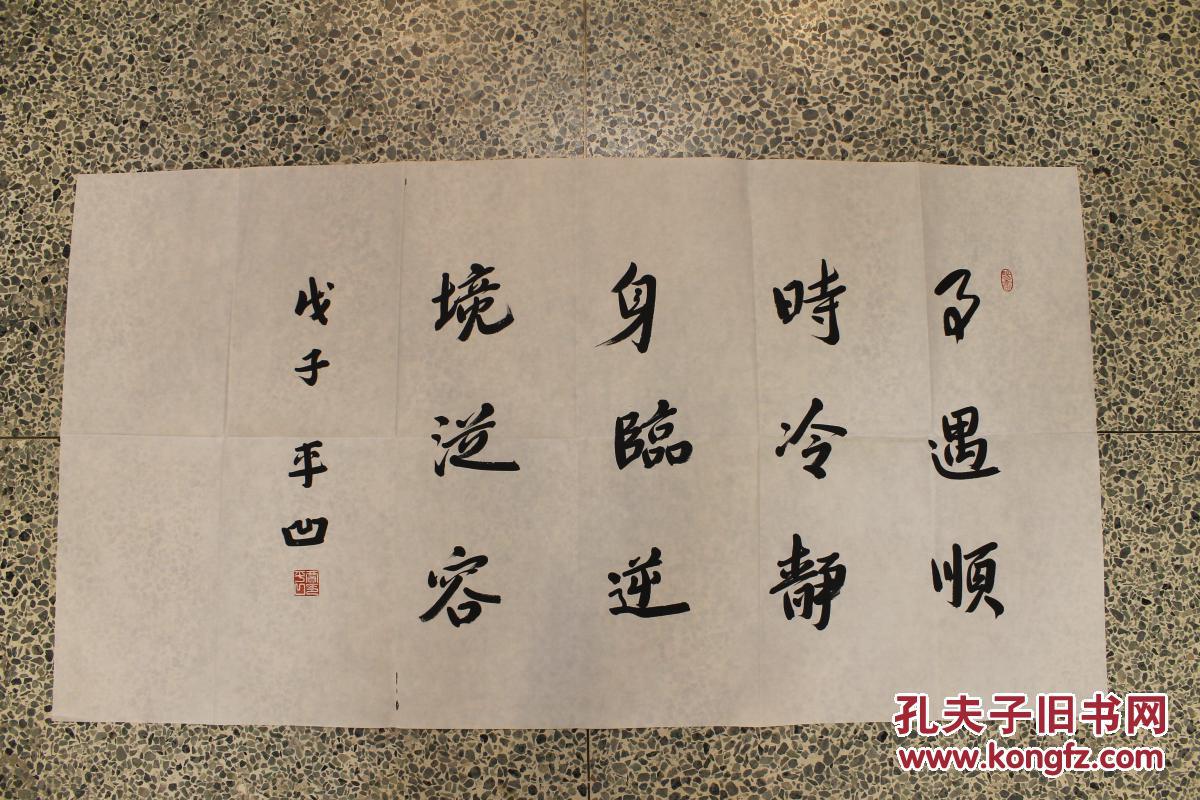 事遇順
時冷靜
身臨逆
境從容
戊子 平凹
孔夫子旧书网
www.kongfz.com